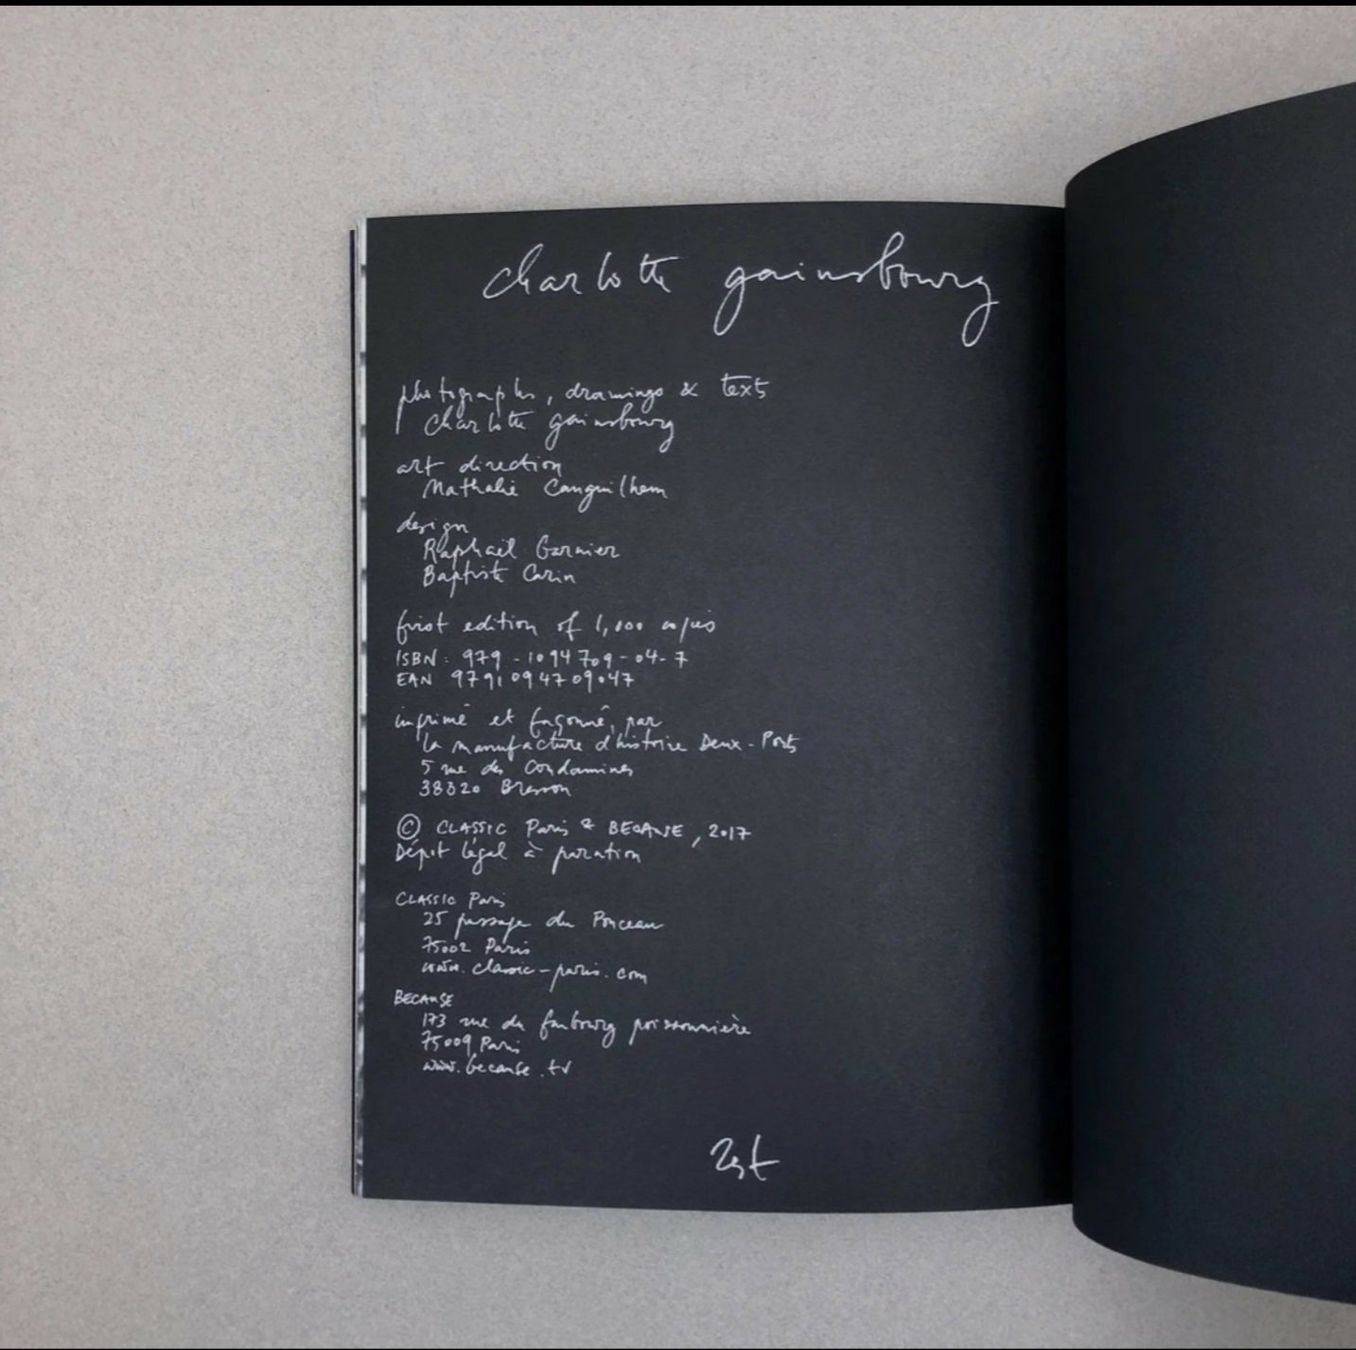 charlotte gainsbourg
photographs, drawings & text
charlotte gainsbourg
art direction
Nathalie Canguilhem
design
Raphaël Garnier
Baptiste Carin
first edition of 1,000 copies
ISBN: 979-1094709-04-7
EAN 9791094709047
imprimé et façonné, par
la manufacture d'histoire Deux-Ponts
5 rue des Condamines
38320 Bresson
© CLASSIC Paris & BECAUSE, 2017
Dépôt légal à parution
CLASSIC Paris
25 passage du Ponceau
75002 Paris
www.classic-paris.com
BECAUSE
173 rue du faubourg poissonnière
75009 Paris
www.because.tv